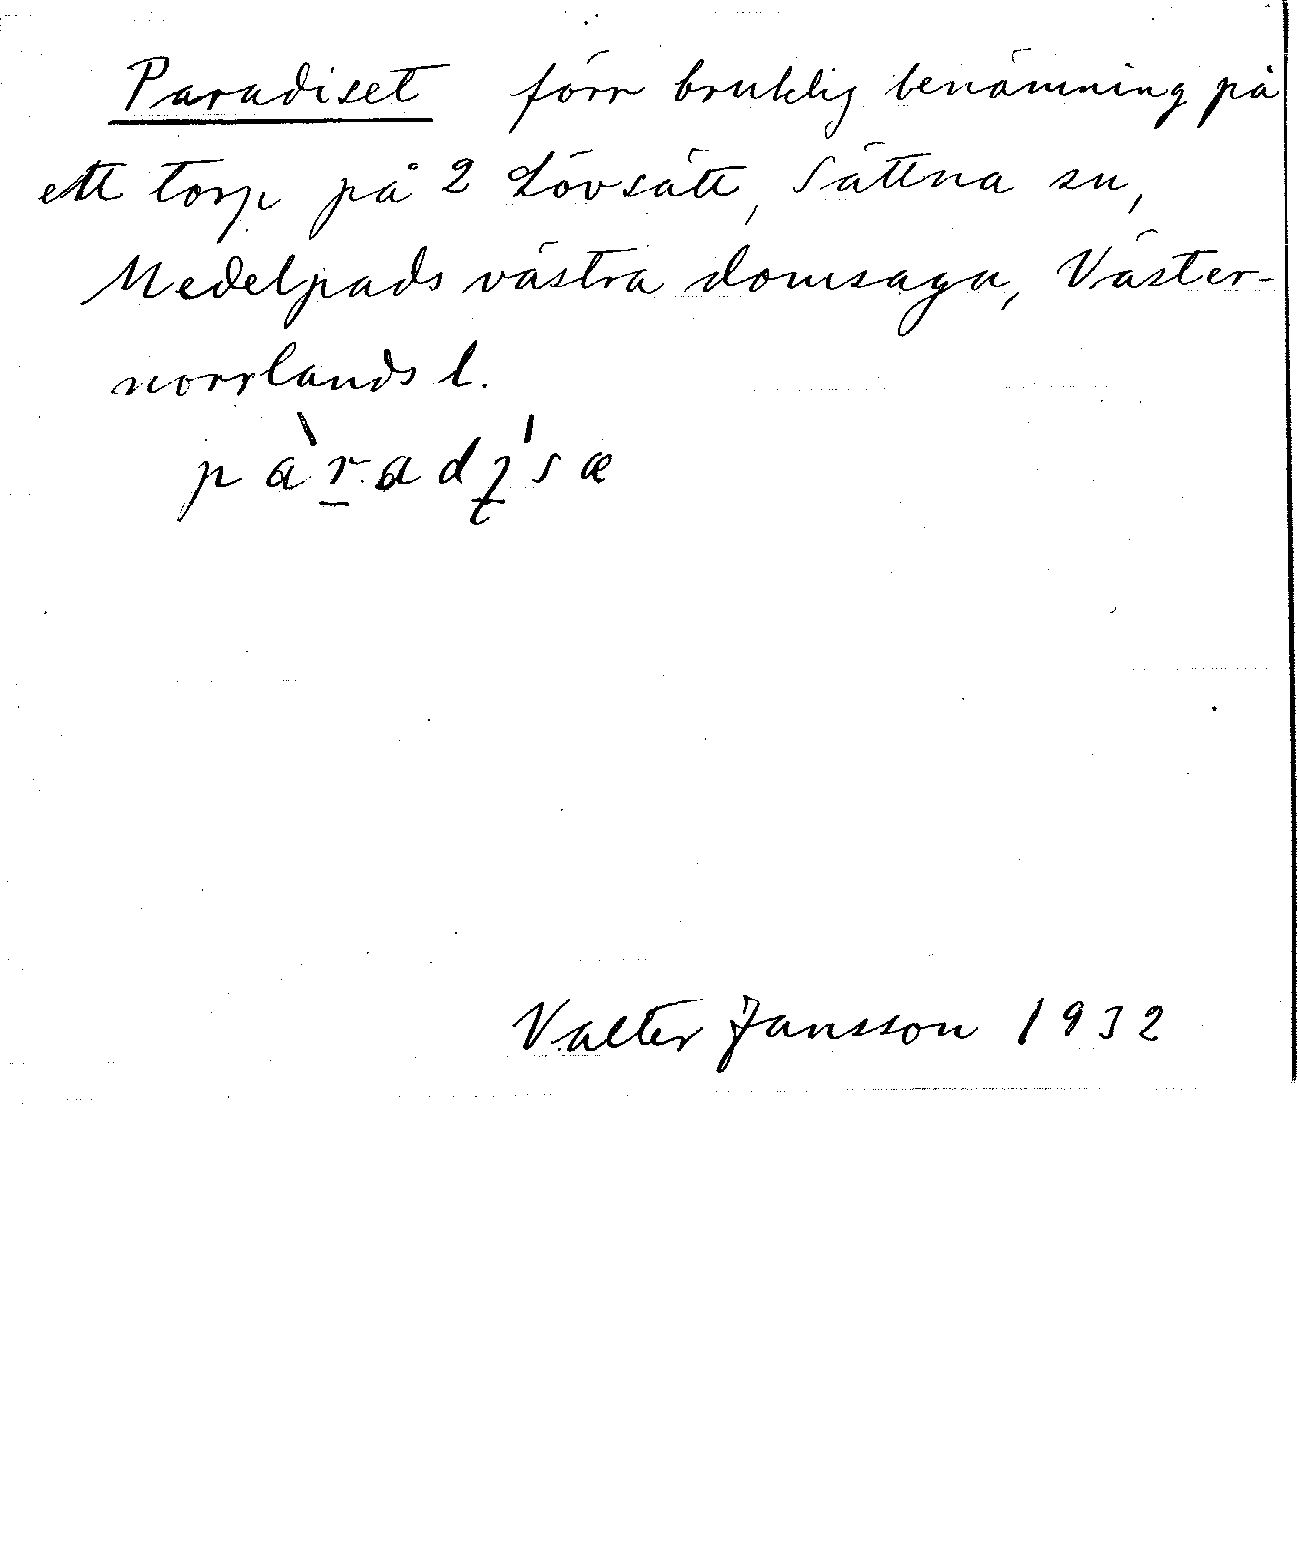 Paradiset förr bruklig benämning på
ett torp på 2 Lövsätt, Sättna sn,
Medelpads västra domsaga, Väster-
norrlands l.
pàradi̱'sæ
Valter Jansson 1932